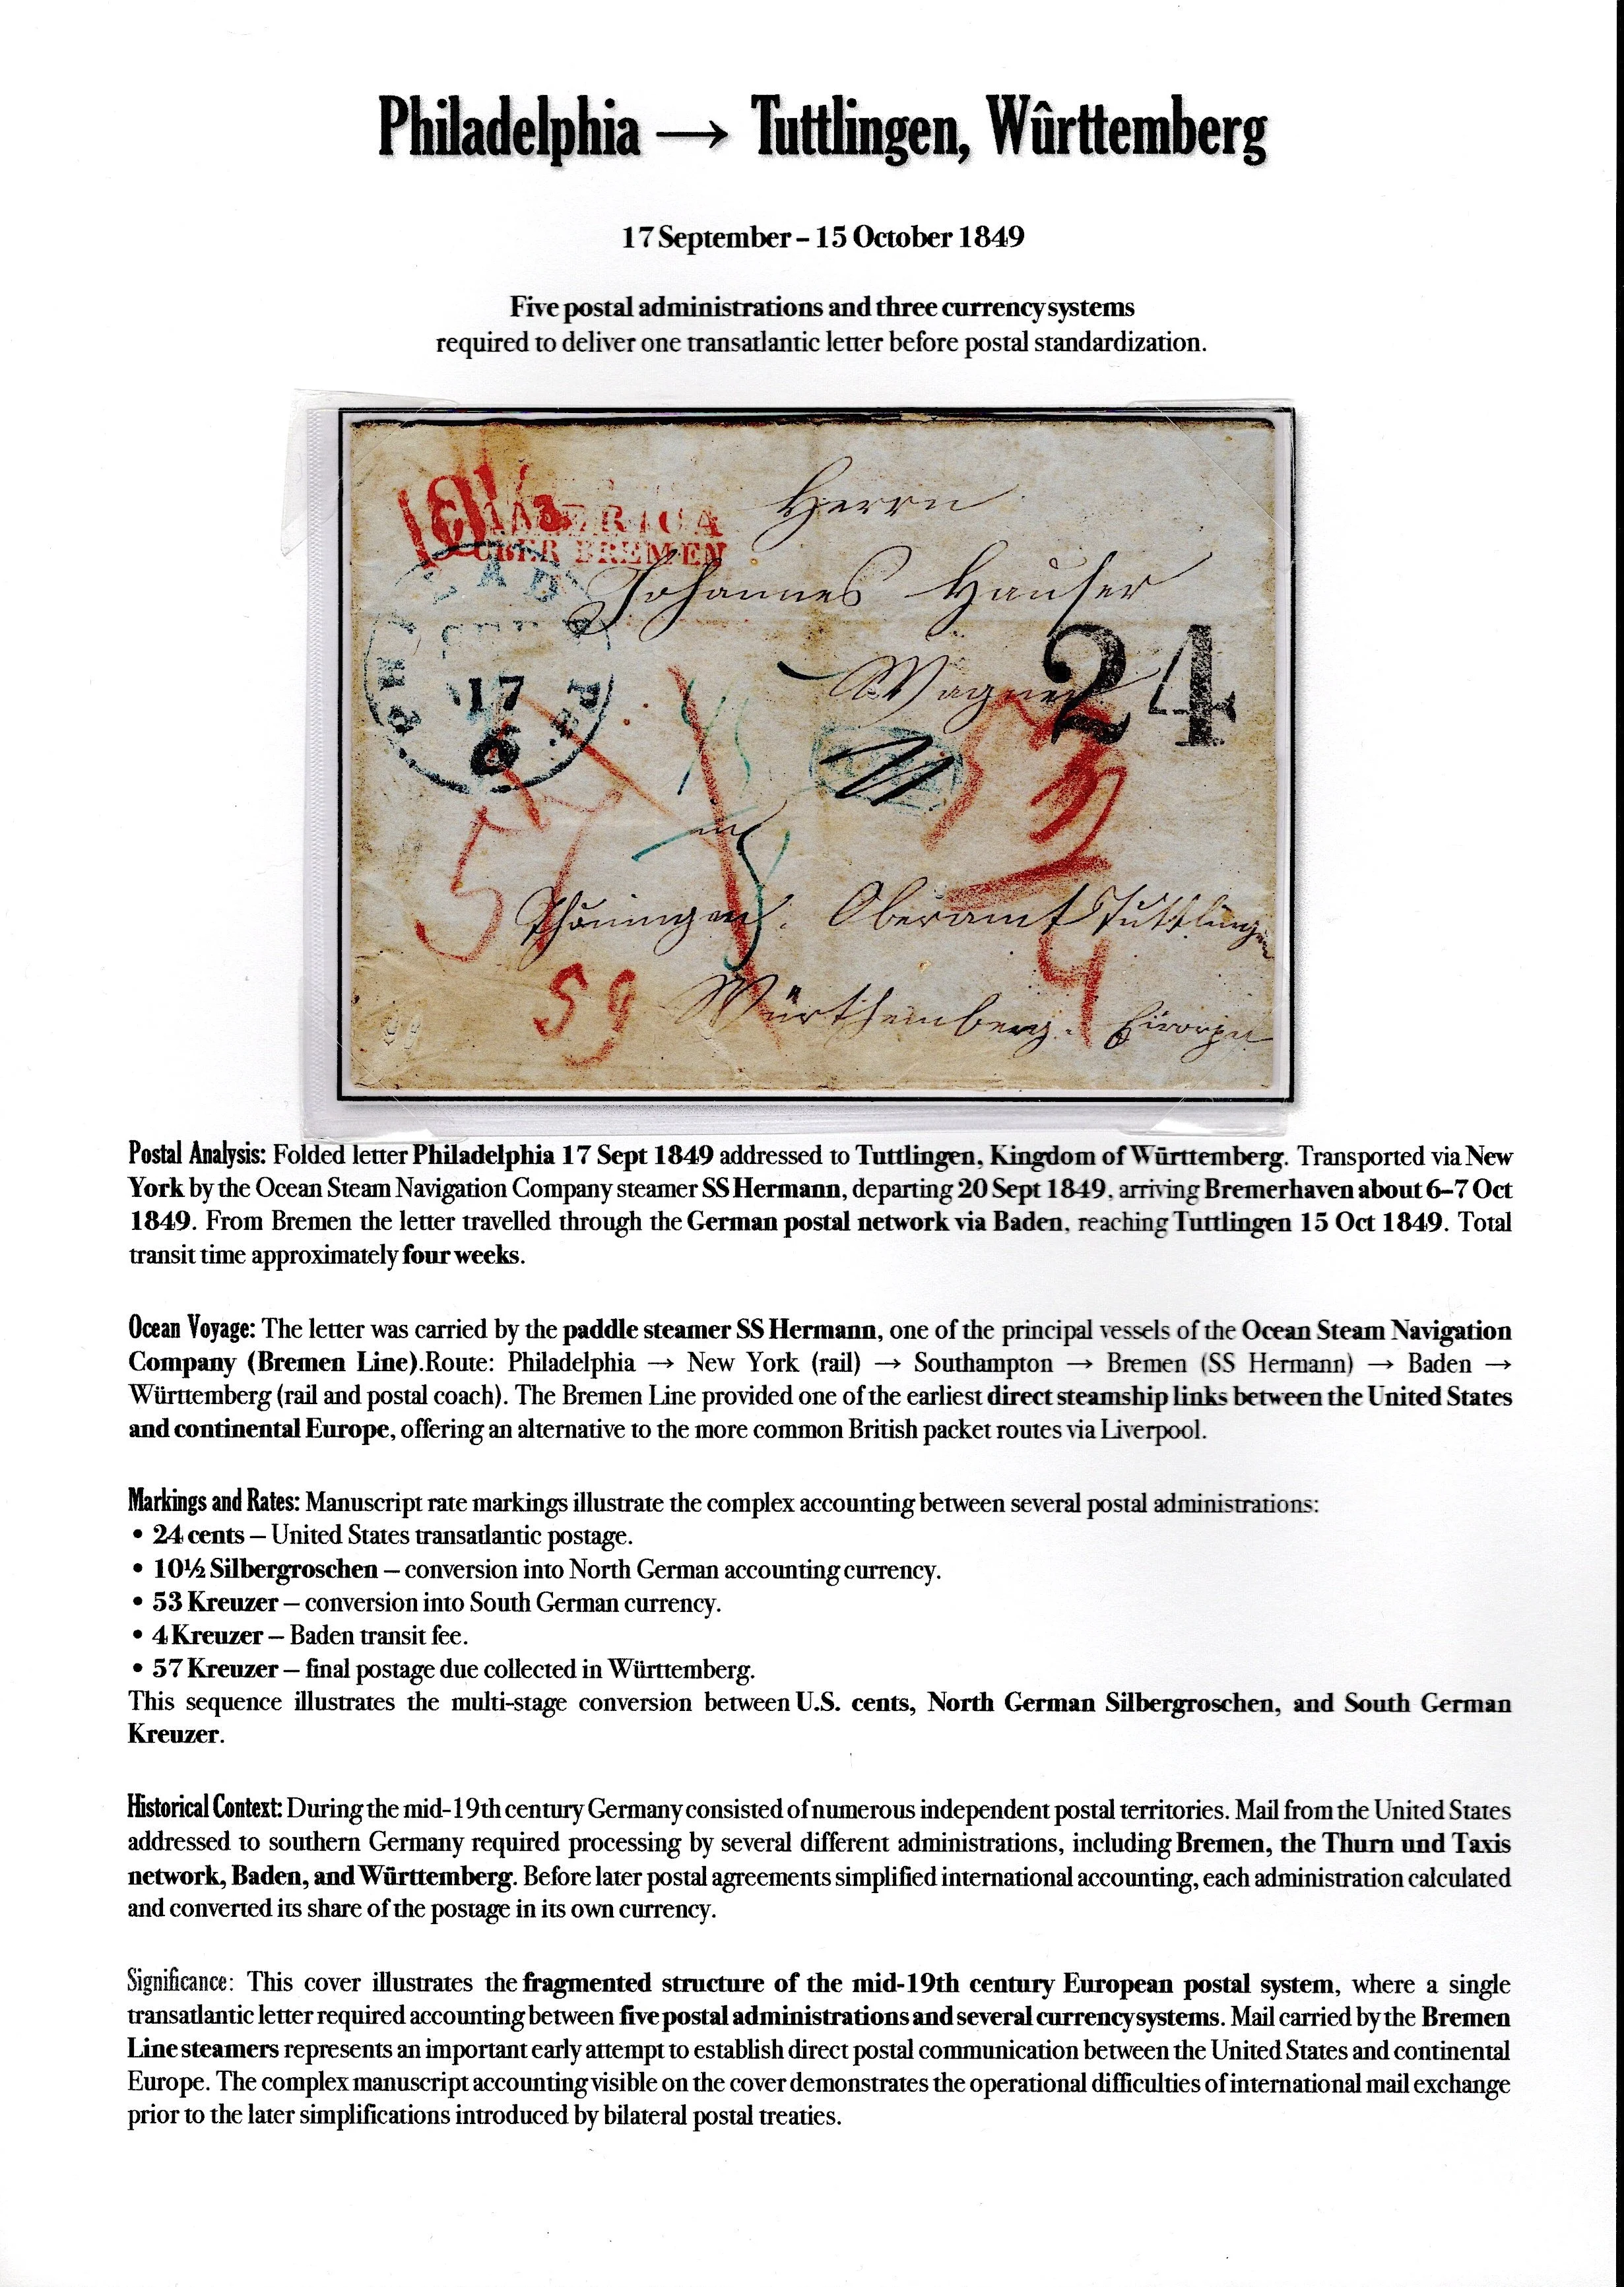 Philadelphia → Tuttlingen, Wûrttemberg
17 September – 15 October 1849
Five postal administrations and three currency systems
required to deliver one transatlantic letter before postal standardization.
AMERICA
ÜBER BREMEN
Herrn
Johannes Hauser
Wagner
24
17
in
Oberamt Tuttlingen
Würthemberg. Europa
57
59
4
Postal Analysis: Folded letter Philadelphia 17 Sept 1849 addressed to Tuttlingen, Kingdom of Württemberg. Transported via New
York by the Ocean Steam Navigation Company steamer SS Hermann, departing 20 Sept 1849, arriving Bremerhaven about 6–7 Oct
1849. From Bremen the letter travelled through the German postal network via Baden, reaching Tuttlingen 15 Oct 1849. Total
transit time approximately four weeks.
Ocean Voyage: The letter was carried by the paddle steamer SS Hermann, one of the principal vessels of the Ocean Steam Navigation
Company (Bremen Line).Route: Philadelphia → New York (rail) → Southampton → Bremen (SS Hermann) → Baden →
Württemberg (rail and postal coach). The Bremen Line provided one of the earliest direct steamship links between the United States
and continental Europe, offering an alternative to the more common British packet routes via Liverpool.
Markings and Rates: Manuscript rate markings illustrate the complex accounting between several postal administrations:
• 24 cents – United States transatlantic postage.
• 10½ Silbergroschen – conversion into North German accounting currency.
• 53 Kreuzer – conversion into South German currency.
• 4 Kreuzer – Baden transit fee.
• 57 Kreuzer – final postage due collected in Württemberg.
This sequence illustrates the multi-stage conversion between U.S. cents, North German Silbergroschen, and South German
Kreuzer.
Historical Context: During the mid-19th century Germany consisted of numerous independent postal territories. Mail from the United States
addressed to southern Germany required processing by several different administrations, including Bremen, the Thurn und Taxis
network, Baden, and Württemberg. Before later postal agreements simplified international accounting, each administration calculated
and converted its share of the postage in its own currency.
Significance: This cover illustrates the fragmented structure of the mid-19th century European postal system, where a single
transatlantic letter required accounting between five postal administrations and several currency systems. Mail carried by the Bremen
Line steamers represents an important early attempt to establish direct postal communication between the United States and continental
Europe. The complex manuscript accounting visible on the cover demonstrates the operational difficulties of international mail exchange
prior to the later simplifications introduced by bilateral postal treaties.